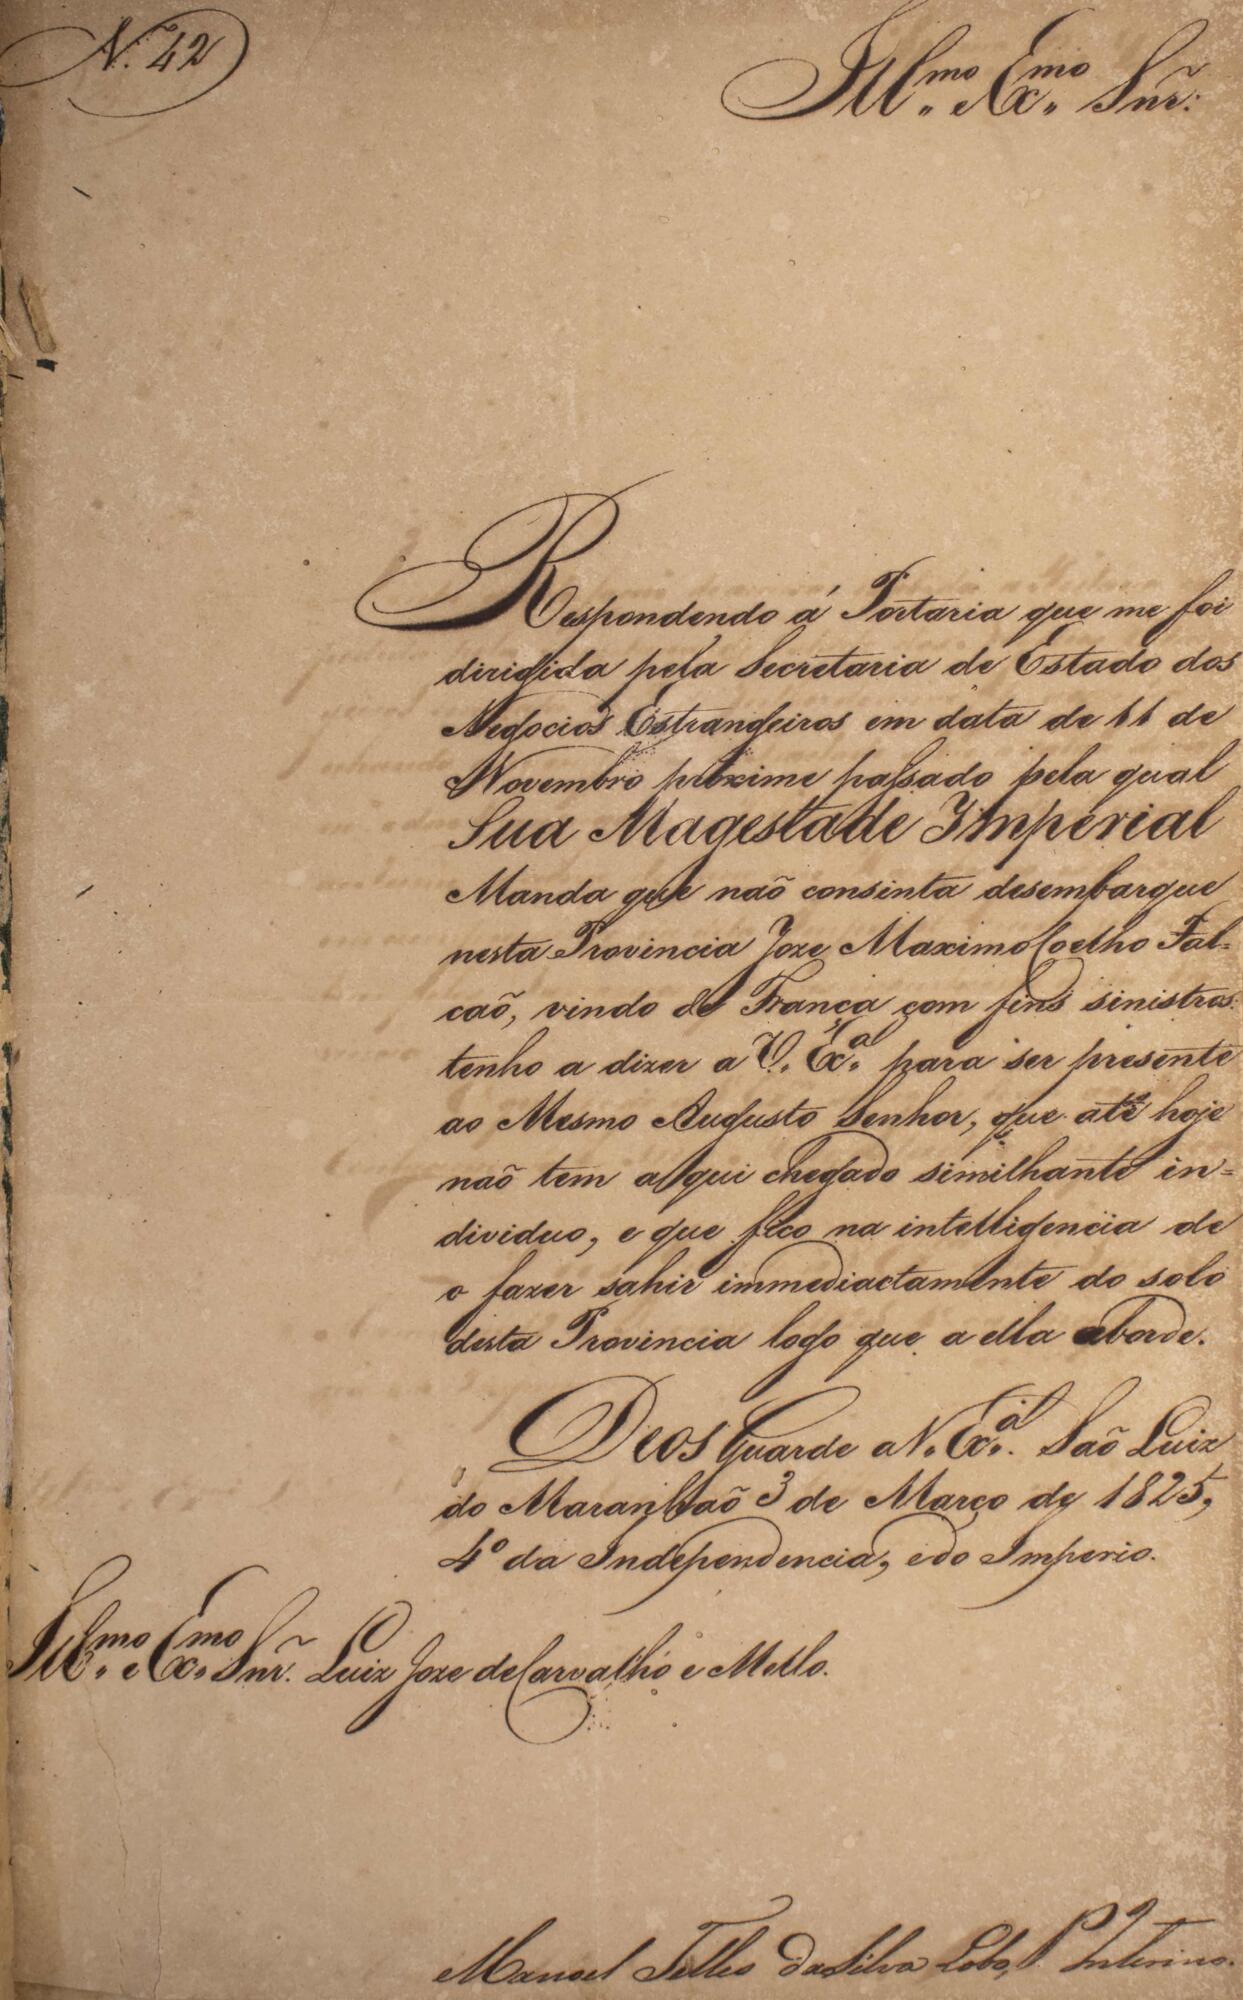 N. 42
Ill.mo e Ex.mo Snr̃.
Respondendo á Portaria que me foi
dirigida pela Secretaria de Estado dos
Negocios Estrangeiros em data de 11 de
Novembro proximo passado pela qual
Sua Magestade Imperial
Manda que naõ consinta desembarque
nesta Provincia Joze Maximo Coelho Fal=
caõ, vindo de França com fins sinistros:
tenho a dizer a V. Ex.a para ser presente
ao Mesmo Augusto Senhor, que até hoje
naõ tem aqui chegado similhante in=
dividuo, e que fico na intelligencia de
o fazer sahir immediactamente do solo
desta Provincia logo que a ella aborde.
Deos Guarde a V. Ex.a. Saõ Luiz
do Maranhaõ 3 de Março de 1825,
4º da Independencia, e do Imperio.
Ill.mo e Ex.mo Snr̃. Luiz Joze de Carvalho e Mello.
Manoel Telles da Silva Lobo, P. Interino.